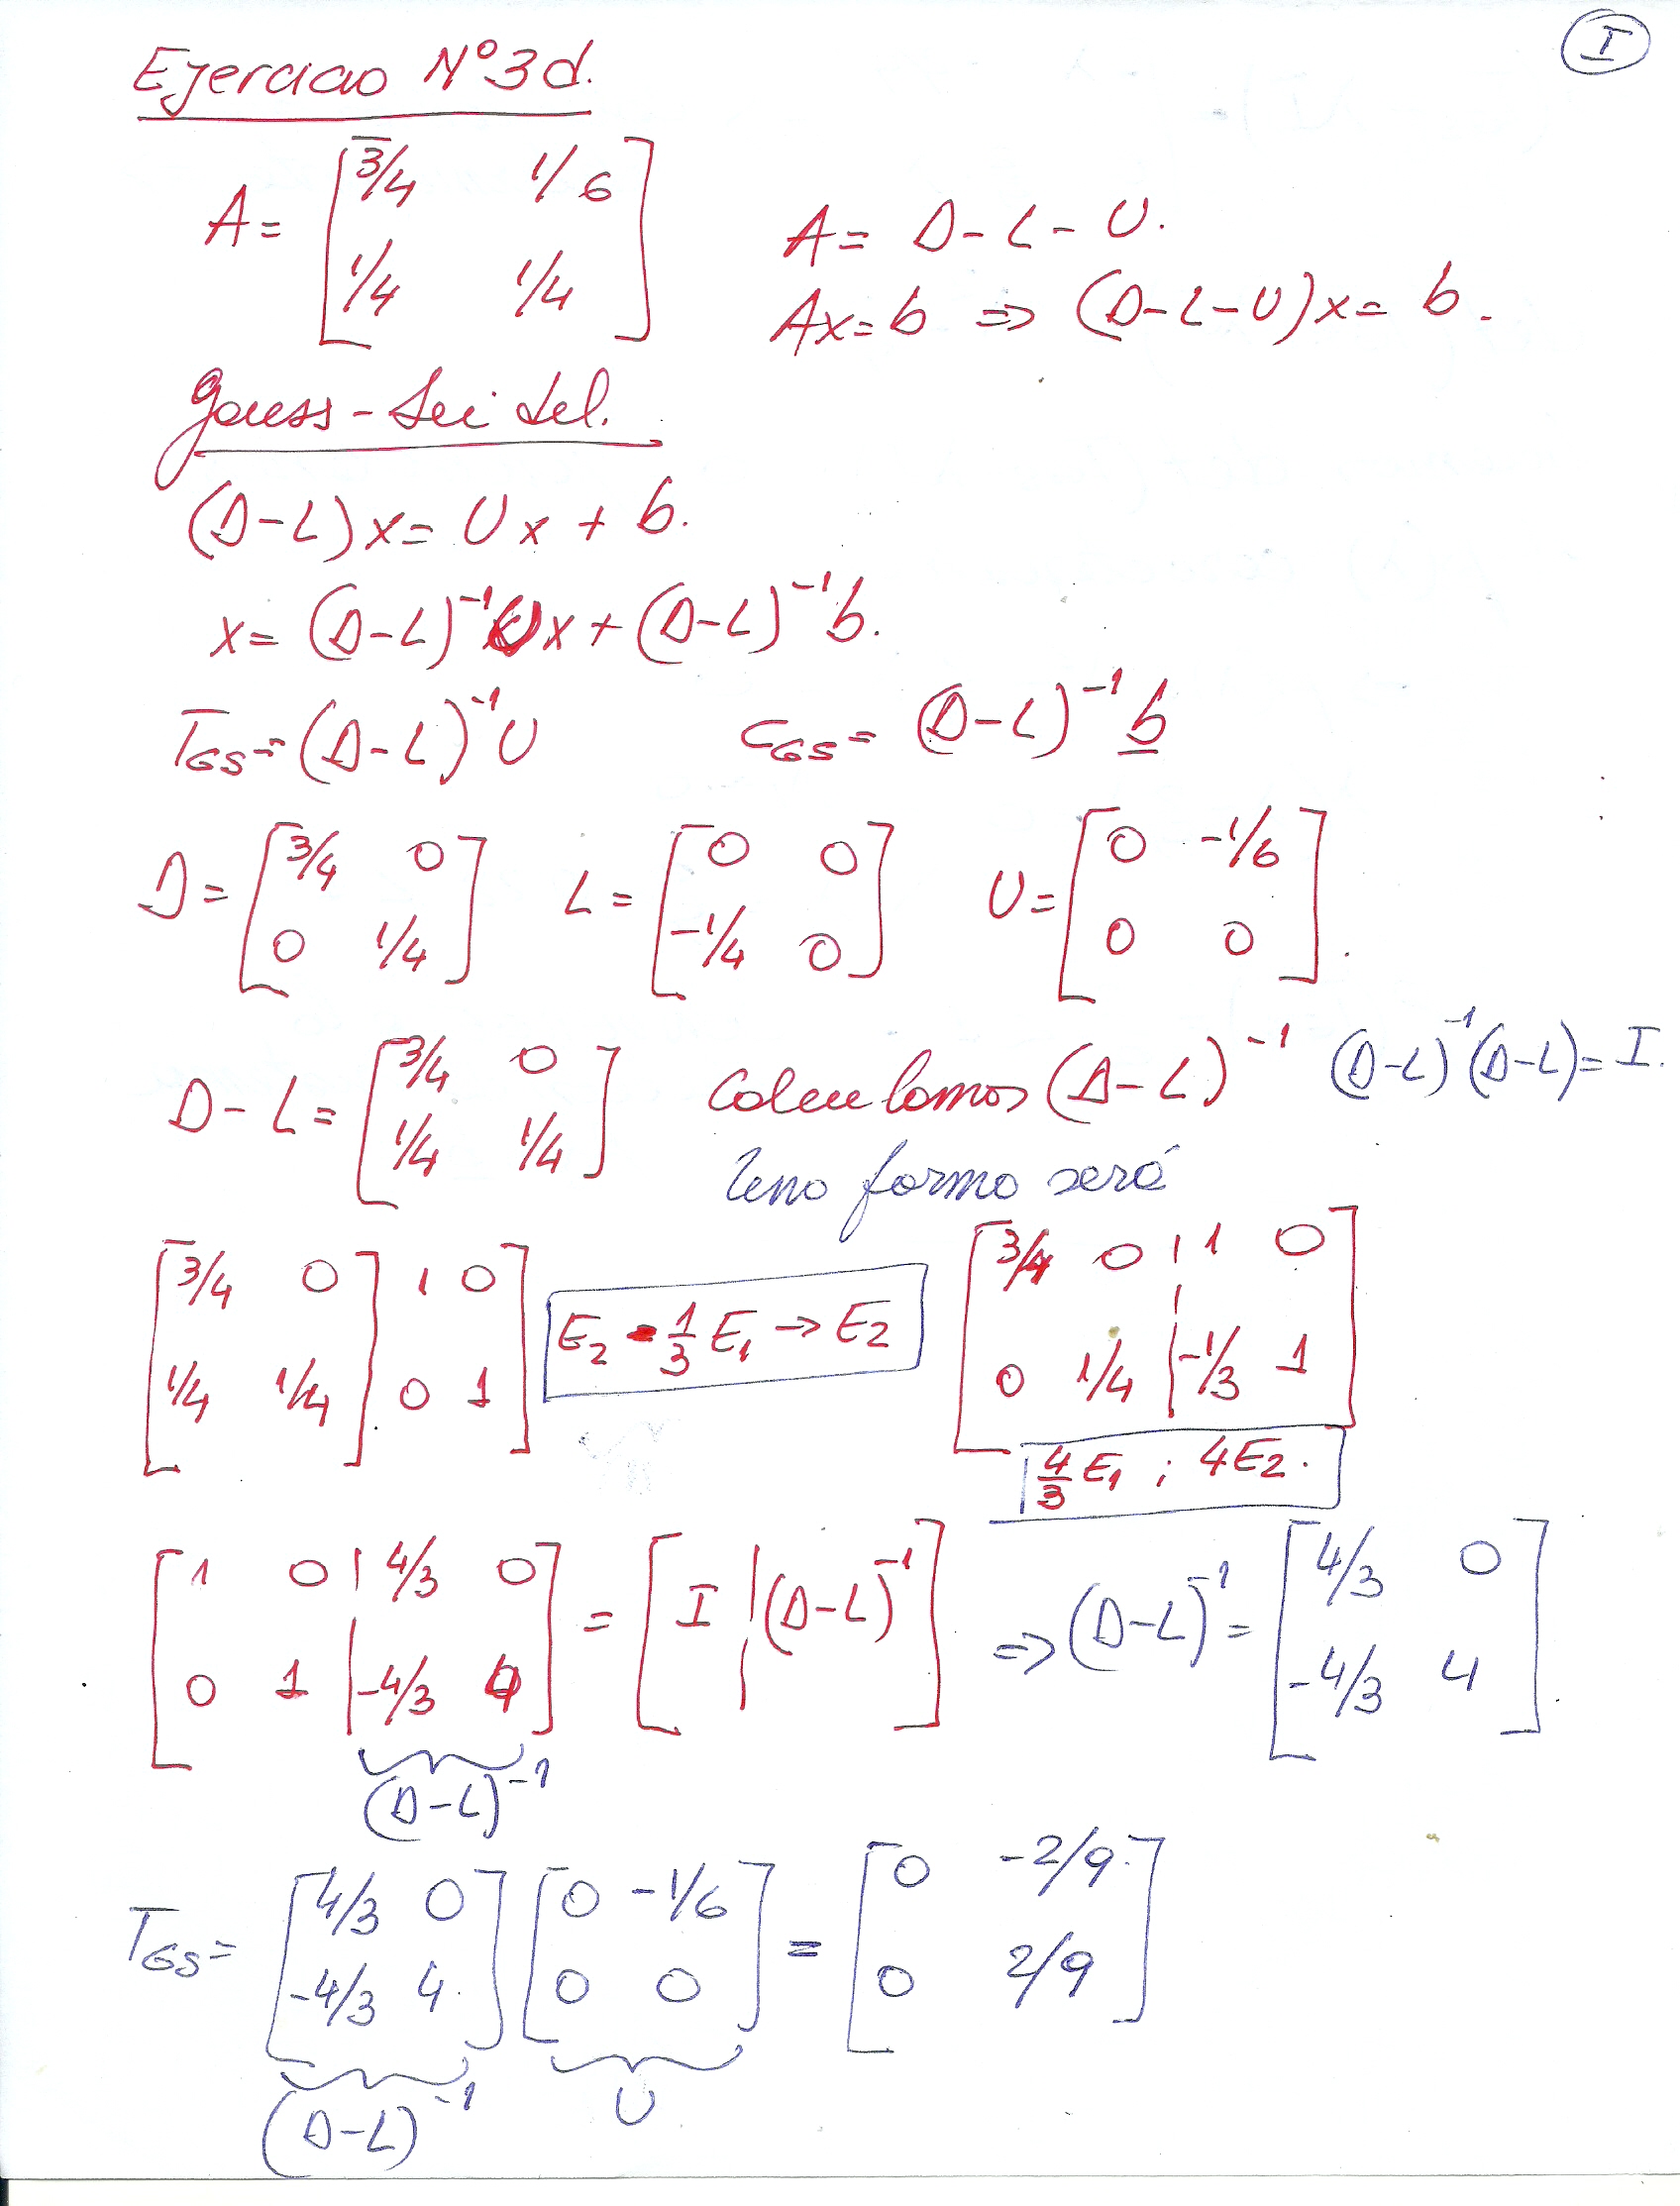 I
Ejercicio Nº3d.
A= [3/4 1/6
1/4 1/4]
A= D-L-U.
Ax=b => (D-L-U)x= b.
Gauss-Seidel.
(D-L)x= Ux + b.
x= (D-L)^-1 Ux + (D-L)^-1 b.
T_GS= (D-L)^-1 U C_GS= (D-L)^-1 b
D= [3/4 0 L= [0 0 U= [0 -1/6
0 1/4] -1/4 0] 0 0].
D-L= [3/4 0
1/4 1/4]
Calculamos (D-L)^-1 (D-L)^-1 (D-L)= I.
Una forma será
[3/4 0] 1 0] E2 - 1/3 E1 -> E2 [3/4 0 | 1 0]
[1/4 1/4] 0 1] [0 1/4 | -1/3 1]
4/3 E1 ; 4E2.
[1 0 | 4/3 0
0 1 | -4/3 4] = [I | (D-L)^-1] => (D-L)^-1= [4/3 0
-4/3 4].
(D-L)^-1
T_GS= [4/3 0 [0 -1/6 = [0 -2/9
-4/3 4] 0 0] 0 2/9]
(D-L)^-1 U